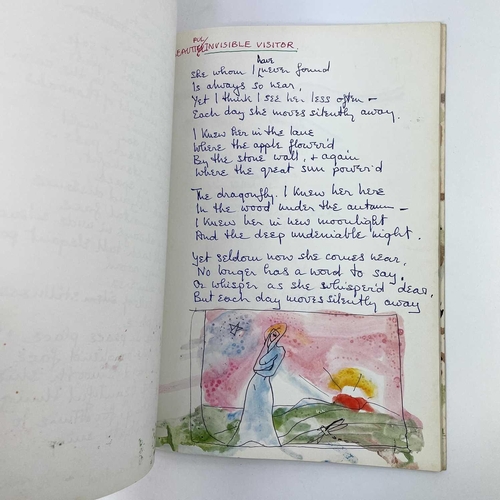 BEAUTIFUL INVISIBLE VISITOR.
She whom I have never found
Is always so near,
Yet I think I see her less often –
Each day she moves silently away.
I knew her in the lane
Where the apple flower'd
By the stone wall, & again
Where the great sun power'd
The dragonfly. I knew her here
In the wood under the autumn –
I knew her in new moonlight
And the deep undeniable night.
Yet seldom now she comes near,
No longer has a word to say,
Or whisper as she whisper'd dear,
But each day moves silently away